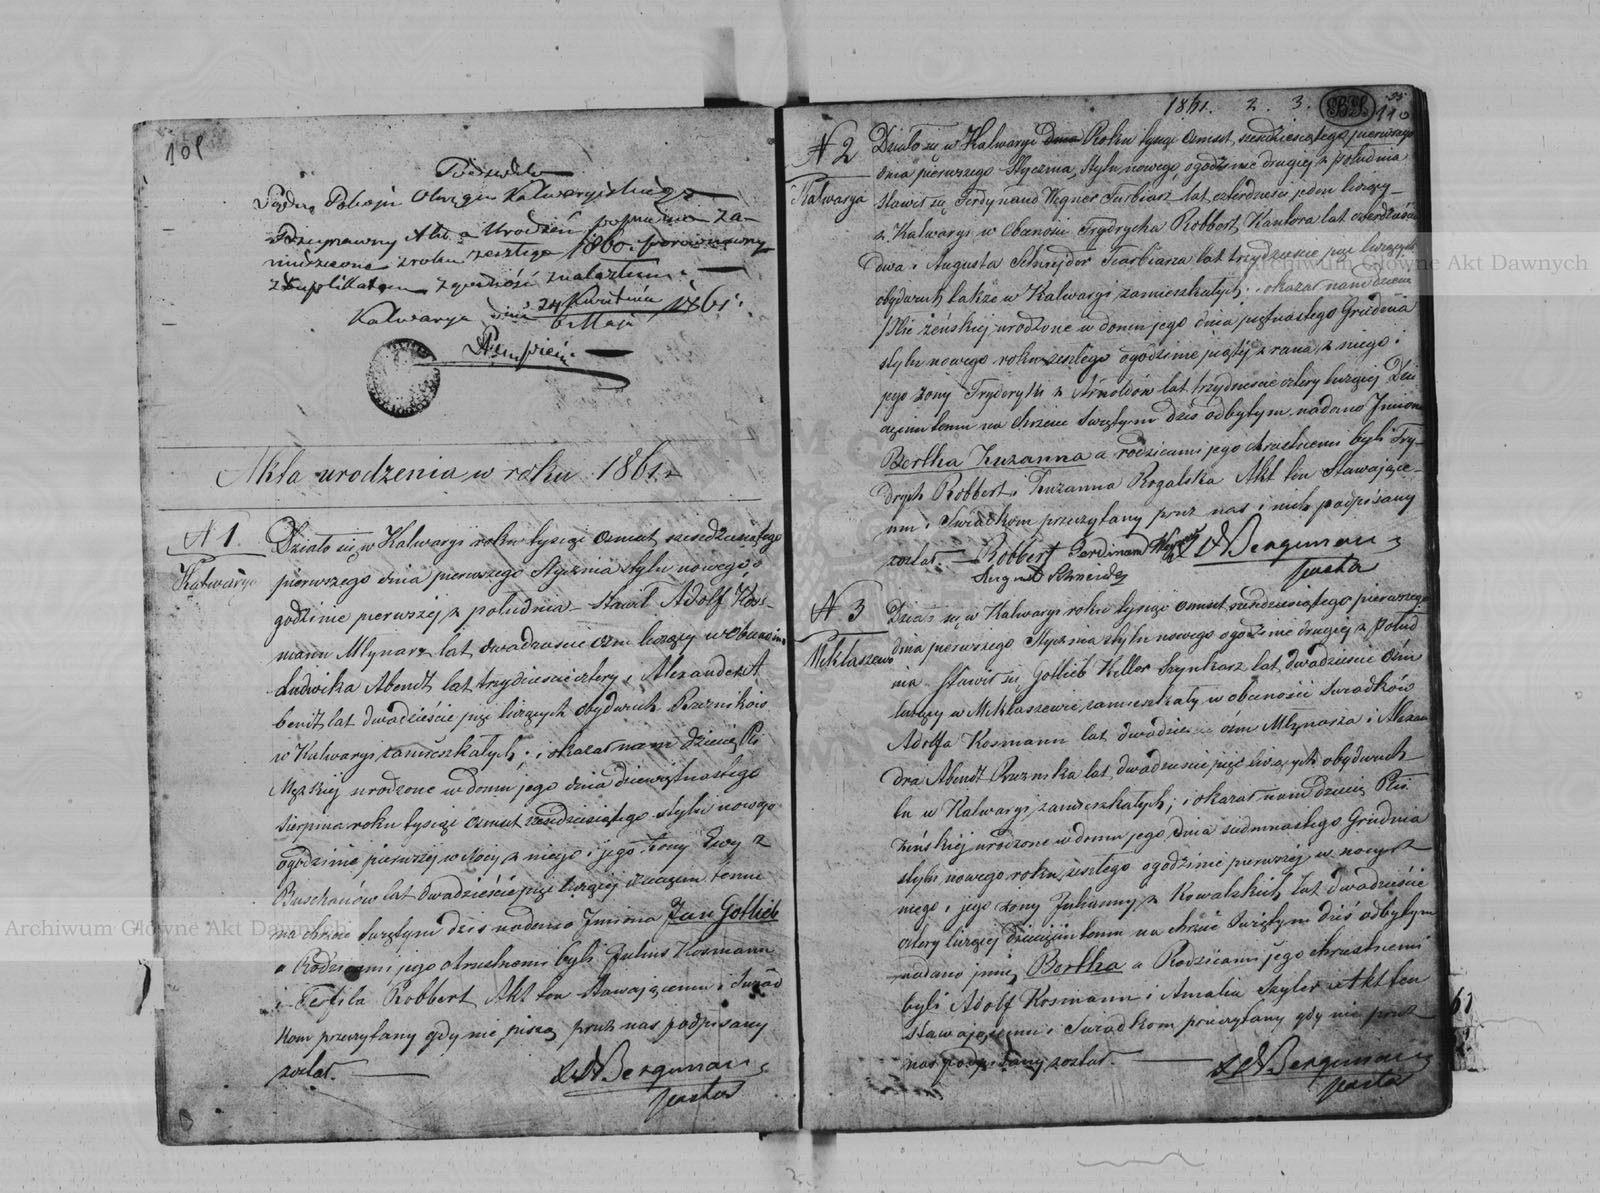 109
Sędzia Pokoju Okręgu Kalwaryjskiego
zduplikatem zgodność znalazłem.
Kalwarya dnia 24 Kwietnia / 6 Maja 1861 r.
Akta urodzenia w roku 1861 r.
N 1.
Kalwarya
Działo się w Kalwaryi roku tysiąc osmset sześćdziesiątego
pierwszego dnia pierwszego Stycznia stylu nowego o
godzinie pierwszej z południa – Stawił Adolf Kos-
mann Mlynarz lat dwadzieście ośm liczący w obecności
Ludwika Abendt lat trzydzieście cztery i Alexandra A
bendt lat dwadzieście pięć liczących obydwuch
w Kalwaryi zamieszkałych; i okazał nam dziecię Płci
Męzkiej urodzone w domu jego dnia dziewiętnastego
Sierpnia roku tysiąc osmset sześdziesiątego stylu nowego
o godzinie pierwszej w nocy z niego i jego żony Ewy z
lat dwadzieście pięć liczącej dziecięciu temu
na chrzcie Swiętym dziś nadano Imiona Jan Gotlieb
a Rodzicami jego chrzestnemi byli Julius Kosmann
i Teofila Robbert, Akt ten stawającemu i Swiad
kom przeczytany gdy nie piszą przez nas podpisany
został.
Bergmann
pastor
1861. 2. 3.
110
N 2
Kalwarya
Działo się w Kalwaryi dnia Roku tysiąc osmset sześdziesiątego pierwszego
dnia pierwszego Stycznia, Stylu nowego, o godzinie drugiej z południa
stawił się Ferdynand Wegner Farbiarz lat czterdzieści jeden liczący
z Kalwaryi w obecności Frydrycha Robbert, Kantora lat czterdzieści
dwa i Augusta Schnejder Farbiarza lat trzydzieście pięć liczących
obydwuch także w Kalwaryi zamieszkałych; i okazał nam dziecię
płci żeńskiej urodzone w domu jego dnia piętnastego Grudnia
stylu nowego roku zeszłego o godzinie piątej z rana, z niego i
jego żony Fryderyki z Arnoldów lat trzydzieście cztery liczącej Dzie
cięciu temu na chrzcie Swiętym dziś odbytym nadano Imiona
Bertha Zuzanna a rodzicami jego chrzestnemi byli Fry-
drych Robbert i Zuzanna Rogalska Akt ten Stawające-
mu i Swiadkom przeczytany przez nas i nich podpisany
został. — Robbert Ferdinand Wegner Bergmann
August Schneider pastor
N 3
Mikłaszewo
Działo się w Kalwaryi roku tysiąc osmset sześdziesiątego pierwszego
dnia pierwszego Stycznia stylu nowego o godzinie drugiej z połud
nia Stawił się Gotlieb Keller Szynkarz lat dwadzieście ośm
liczący w Mikłaszewie zamieszkały w obecności Swiadków
Adolfa Kosmann lat dwadzieście ośm Młynarza i Alexan
dra Abendt lat dwadzieście pięć liczących obydwuch
tu w Kalwaryi zamieszkałych; i okazał nam dziecię Płci
żeńskiej urodzone w domu jego dnia siedmnastego Grudnia
stylu nowego roku zeszłego o godzinie pierwszej w nocy z
niego i jego żony Juhanny z Kowalskich lat dwadzieście
cztery liczącej dziecięciu temu na chrzcie Swiętym dziś odbytym
nadano imię Bertha a Rodzicami jego chrzestnemi
byli Adolf Kosmann i Amalia Szyler Akt ten
stawającemu i Swiadkom przeczytany gdy nie przez
nas podpisany został.
Bergmann
pastor
Archiwum Główne Akt Dawnych
Archiwum Główne Akt Dawnych